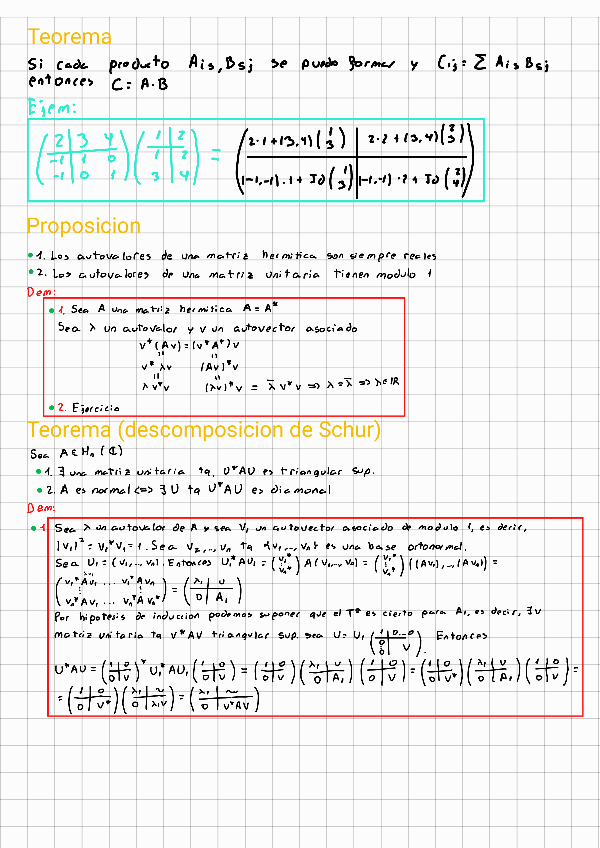 Teorema
Si cada producto Ais, Bsj se puede formar y Cij = Σ Ais Bsj
entonces C = A·B
Ejem:
(2 | 3 4) (1 | 2) = (2·1+(3,4)(1 3) | 2·2+(3,4)(2 3))
(-1 | 1 0) (1 | 2)
(-1 | 0 1) (3 | 4) ((-1,-1)·1 + Id (1 3) | (-1,-1)·2 + Id (2 4))
Proposicion
1. Los autovalores de una matriz hermitica son siempre reales
2. Los autovalores de una matriz unitaria tienen modulo 1
Dem:
1. Sea A una matriz hermitica A = A*
Sea λ un autovalor y v un autovector asociado
v*(Av) = (v*A*)v
v*λv (Av)*v
λv*v (λv)*v = λ̄ v*v => λ = λ̄ => λ∈ℝ
2. Ejercicio
Teorema (descomposicion de Schur)
Sea A∈Mn(ℂ)
1. ∃ una matriz unitaria tq. U*AU es triangular sup.
2. A es normal <=> ∃ U tq U*AU es diagonal
Dem:
1 Sea λ un autovalor de A y sea V1 un autovector asociado de modulo 1, es decir,
|V1|² = V1*V1 = 1. Sea V2,..,Vn tq {V1,..,Vn} es una base ortonormal.
Sea U1 = (V1,..,Vn). Entonces U1*AU1 = (V1* ⋮ Vn*) A(V1,..,Vn) = (V1* ⋮ Vn*) ((AV1),..,(AVn)) =
(V1*AV1 ... V1*AVn ⋮ Vn*AV1 ... Vn*AVn) = (λ1 | u / 0 | A1)
Por hipotesis de induccion podemos suponer que el Tª es cierto para A1, es decir, ∃V
matriz unitaria tq V*AV triangular sup. sea U = U1 (1 | 0...0 / 0 | V). Entonces
U*AU = (1 | 0 / 0 | V)* U1*AU1 (1 | 0 / 0 | V) = (1 | 0 / 0 | V)* (λ1 | u / 0 | A1) (1 | 0 / 0 | V) = (1 | 0 / 0 | V*) (λ1 | u / 0 | A1) (1 | 0 / 0 | V) =
= (1 | 0 / 0 | V*) (λ1 | ~ / 0 | A1V) = (λ1 | ~ / 0 | V*AV)